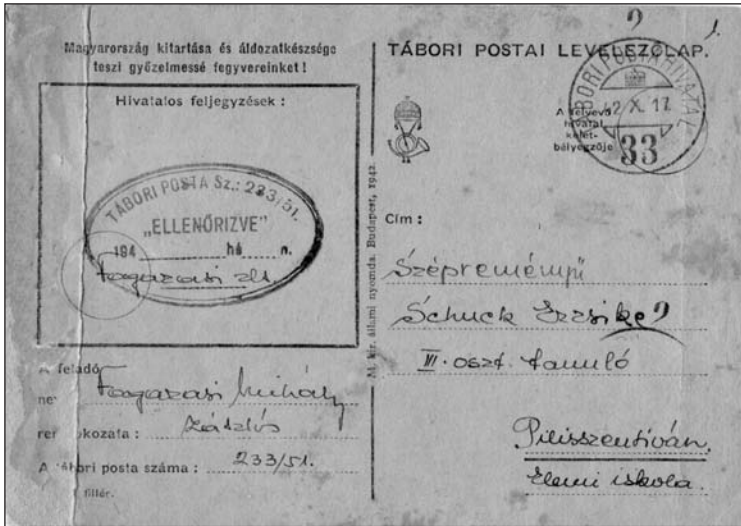 Magyarország kitartása és áldozatkészsége
teszi győzelmessé fegyvereinket!
Hivatalos feljegyzések:
TÁBORI POSTA Sz.: 233/51.
„ELLENŐRIZVE”
194 hó n.
Fogarasi zls.
A feladó
Fogarasi Mihály
rendfokozata: zászlós
A tábori posta száma: 233/51.
fillér.
M. kir. állami nyomda. Budapest, 1942.
TÁBORI POSTAI LEVELEZŐLAP.
TÁBORI POSTAHIVATAL
42 X. 17
33
A felvevő
hivatal
kelet-
bélyegzője
Cím:
Szépreményű
Schuck Erzsike
VI. oszt. tanuló
Pilisszentiván.
Elemi iskola.